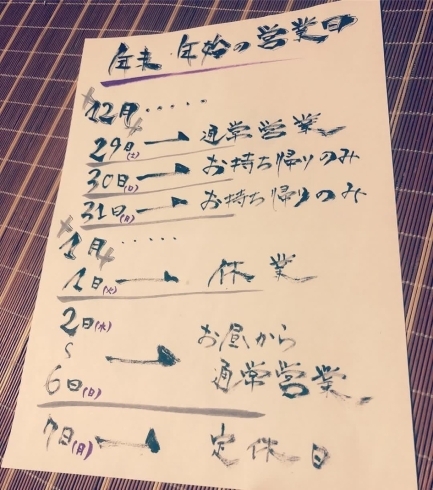 年末 年始の営業日
12月・・・・・
29日(土) → 通常営業
30日(日) → お持ち帰りのみ
31日(月) → お持ち帰りのみ
1月・・・・・
1日(火) → 休業
2日(水)
〜 → お昼から
6日(日) 通常営業
7日(月) → 定休日